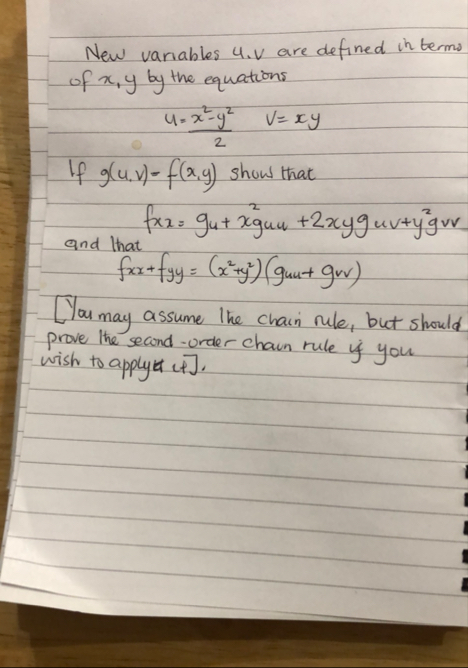 New variables u,v are defined in terms
of x,y by the equations
u = x²-y²/2 v = xy
If g(u,v) = f(x,y) show that
fxx = gu + x²guu + 2xyguv + y²gvv
and that
fxx + fyy = (x²+y²)(guu + gvv)
[You may assume the chain rule, but should
prove the second-order chain rule if you
wish to apply it].